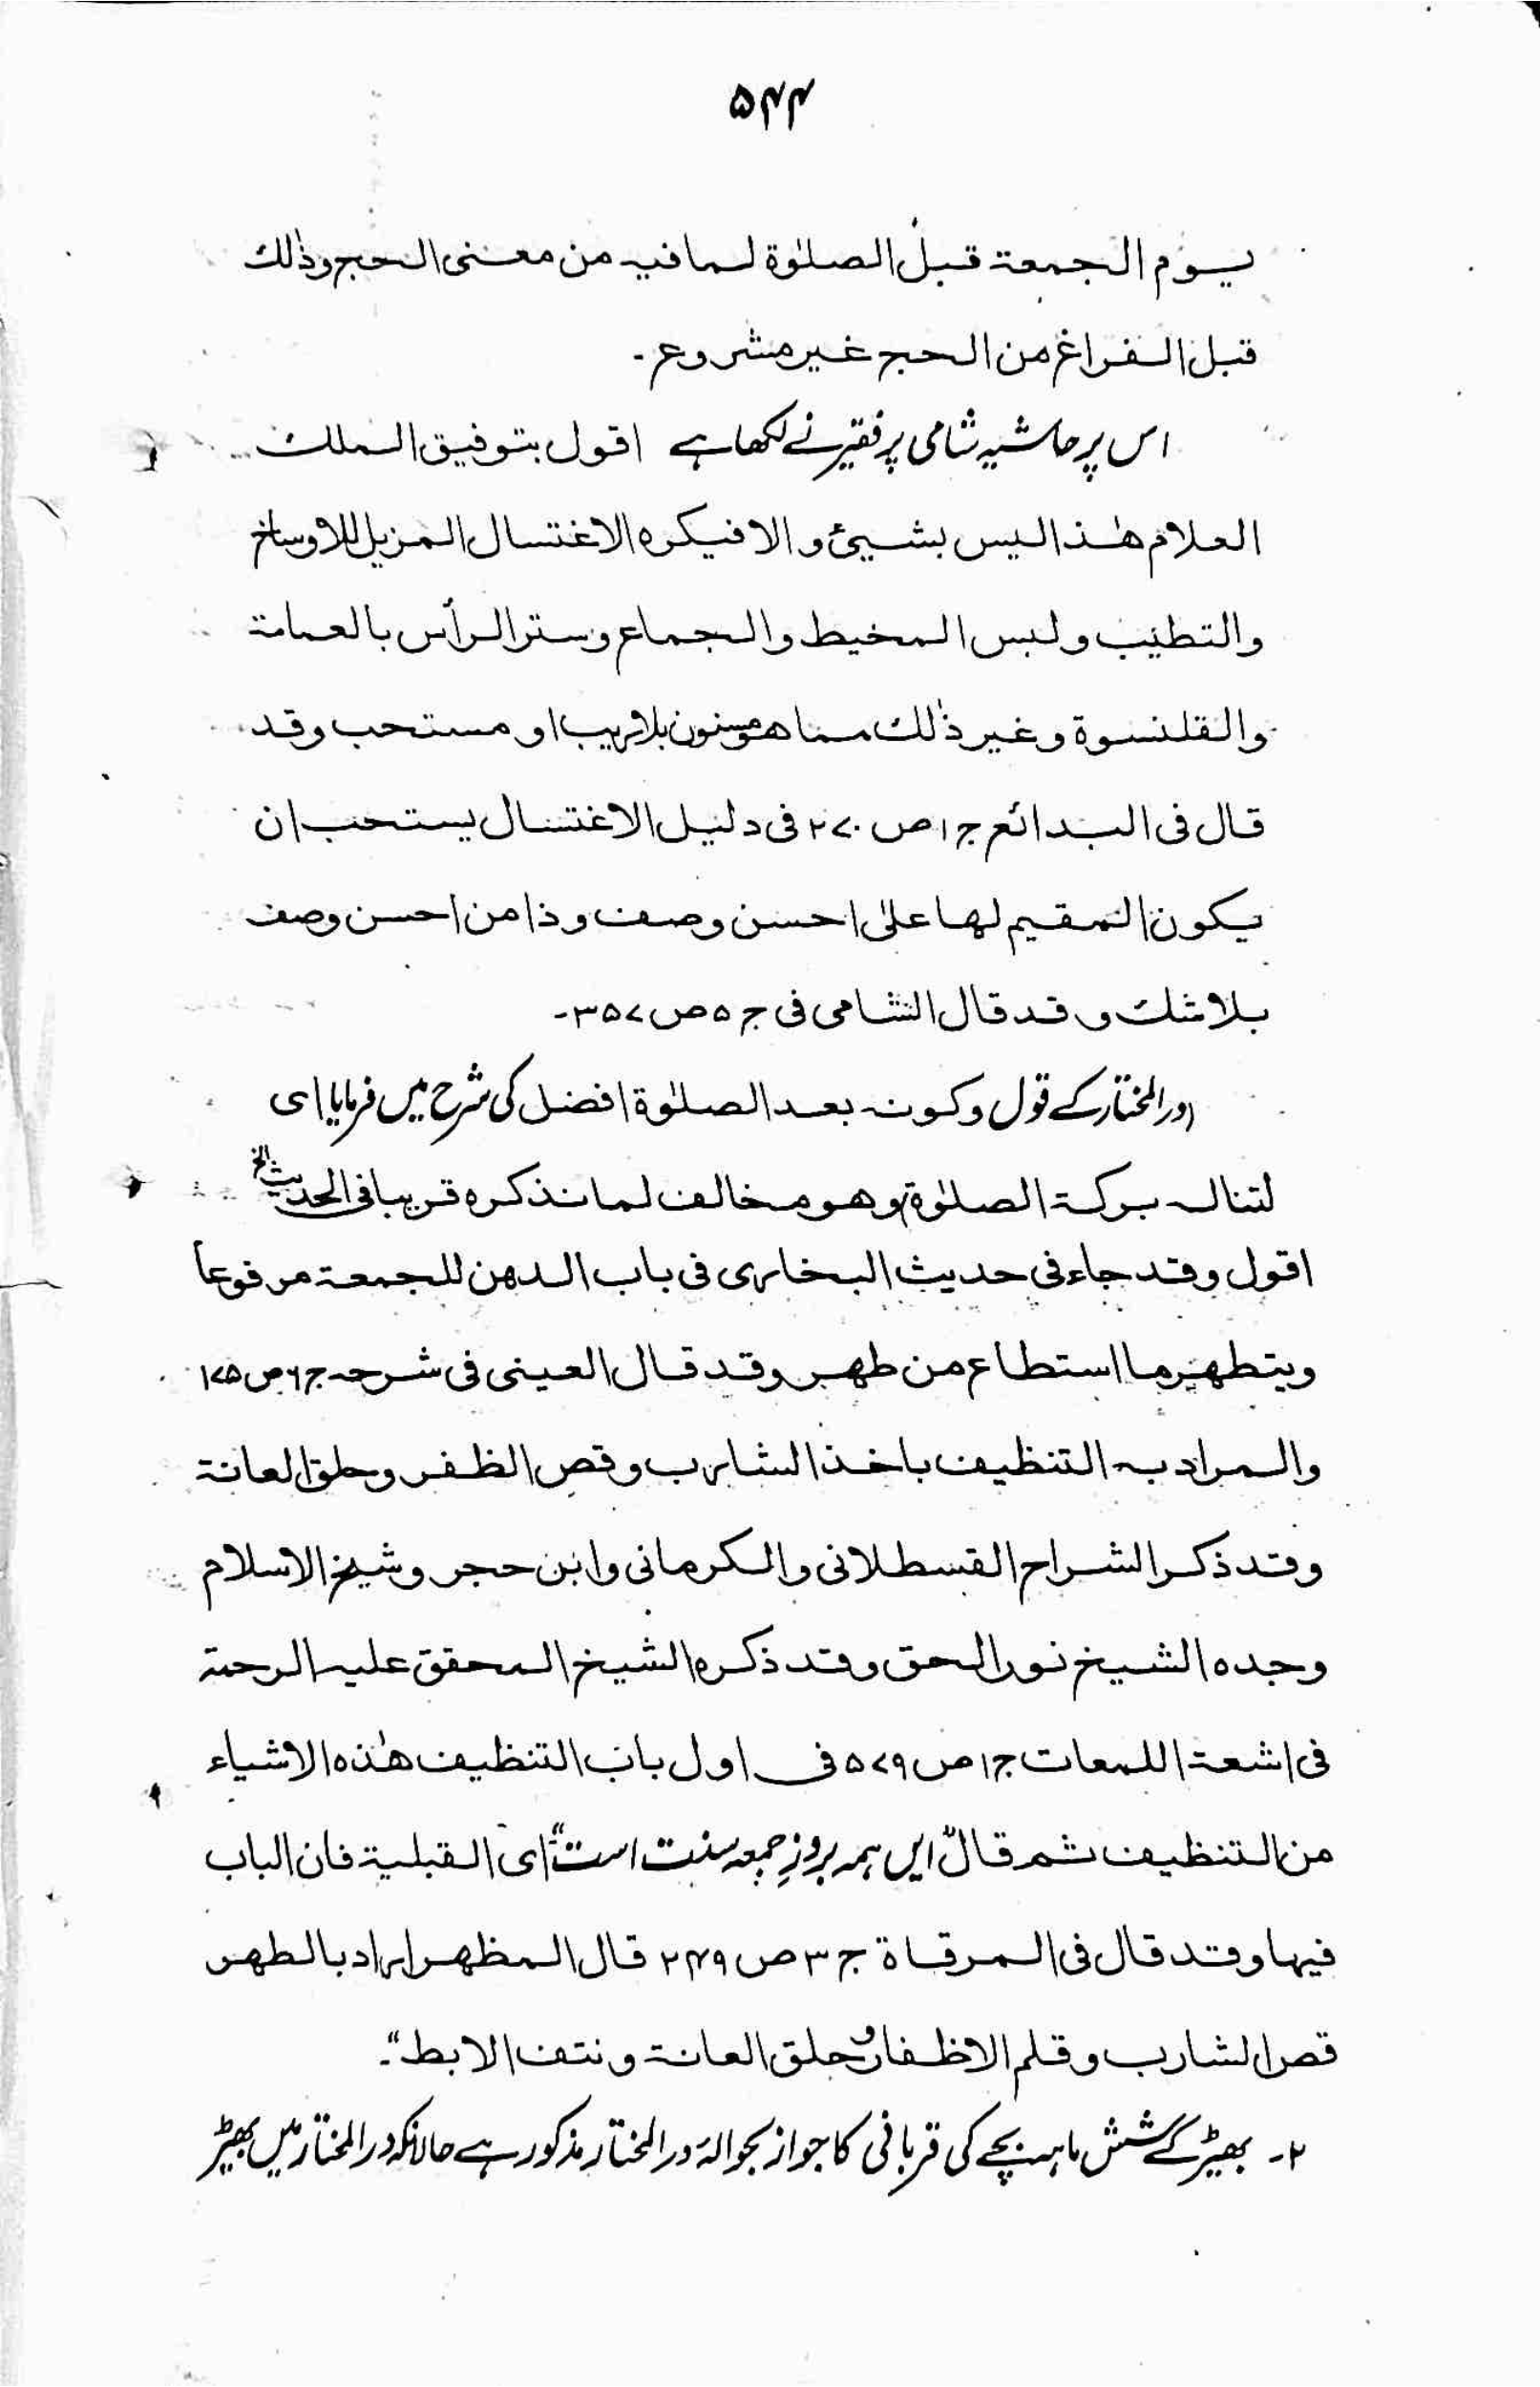 ۵۴۴
يوم الجمعة قبل الصلوٰة لما فيه من معنى الحج وذٰلك
قبل الفراغ من الحج غير مشروع۔
اس پر حاشیہ شامی پر فقیر نے لکھا ہے اقول بتوفيق الملك
العلام هٰذا ليس بشيئ و الا فيكره الاغتسال المزيل للاوساخ
والتطيب و لبس المخيط والجماع وستر الرأس بالعمامة
والقلنسوة وغير ذٰلك مما هو مسنون بلا ريب او مستحب وقد
قال فى البدائع ج ۱ ص ۲۷۰ فى دليل الاغتسال يستحب ان
يكون المقيم لها علىٰ احسن وصف و ذا من احسن وصف
بلا شك و قد قال الشامى فى ج ۵ ص ۳۵۷۔
درالمختار کے قول وكونه بعد الصلوٰة افضل کی شرح میں فرمایا اى
لتناله بركة الصلوٰة وهو مخالف لما نذكره قريبا فى الحديث الخ
اقول وقد جاء فى حديث البخارى فى باب الدهن للجمعة مرفوعاً
ويتطهر ما استطاع من طهر وقد قال العينى فى شرحه ج ۶ ص ۱۷۵
والمراد به التنظيف باخذ الشارب وقص الظفر وحلق العانة
وقد ذكر الشراح القسطلانى والكرمانى وابن حجر وشيخ الاسلام
وجده الشيخ نور الحق وقد ذكره الشيخ المحقق عليه الرحمة
فى اشعة اللمعات ج ۱ ص ۵۷۹ فى اول باب التنظيف هٰذه الاشياء
من التنظيف ثم قال ”ایں ہمہ بروزِ جمعہ سنت است“ اى القبلية فان الباب
فيها وقد قال فى المرقاة ج ۳ ص ۲۴۹ قال المظهر اراد بالطهر
قص الشارب وقلم الاظفار وحلق العانة ونتف الابط“۔
۲۔ بھیڑ کے شش ماہہ بچے کی قربانی کا جواز بحوالہ درالمختار مذکور ہے حالانکہ درالمختار میں بھیڑ